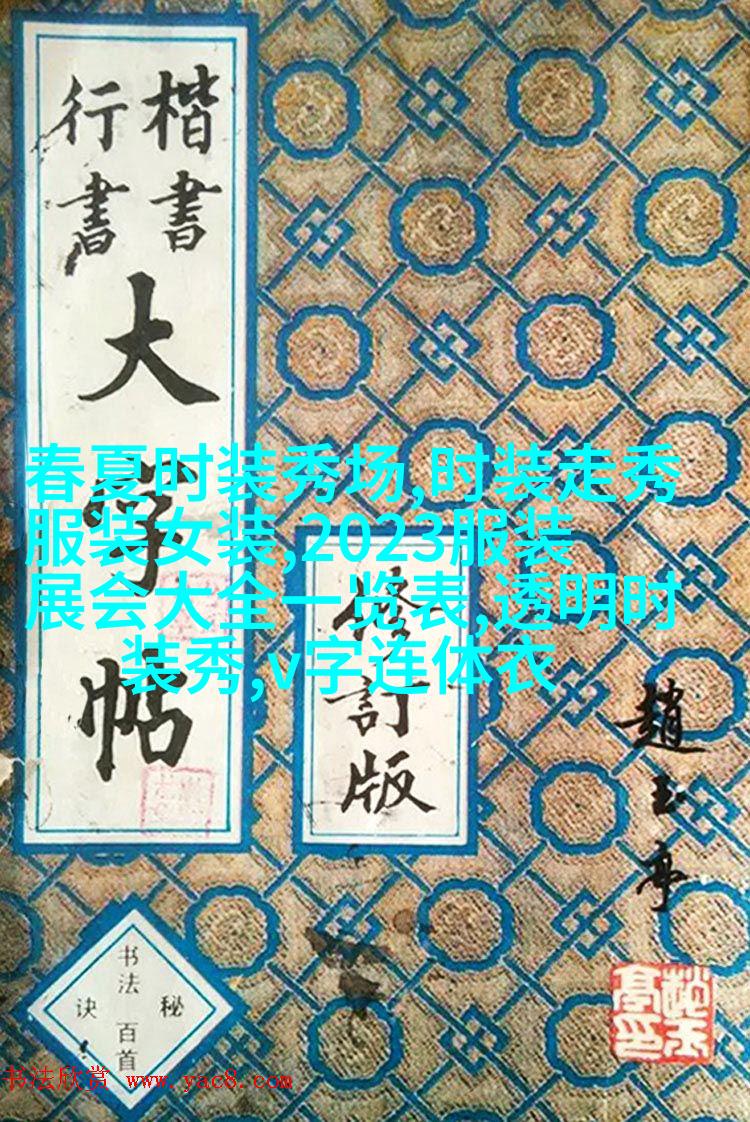 楷書
行書
大字帖
修訂版
趙玉亭
书法百首
秘诀
春夏时装秀场,时装走秀
服装女装,2023服装
展会大全一览表,透明时
装秀,v字连体衣
书法欣赏 www.yac8.com